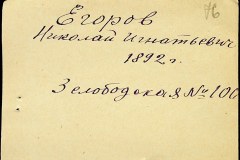 76
Егоров
Николай Игнатьевич
1892 г.
Слободская № 100